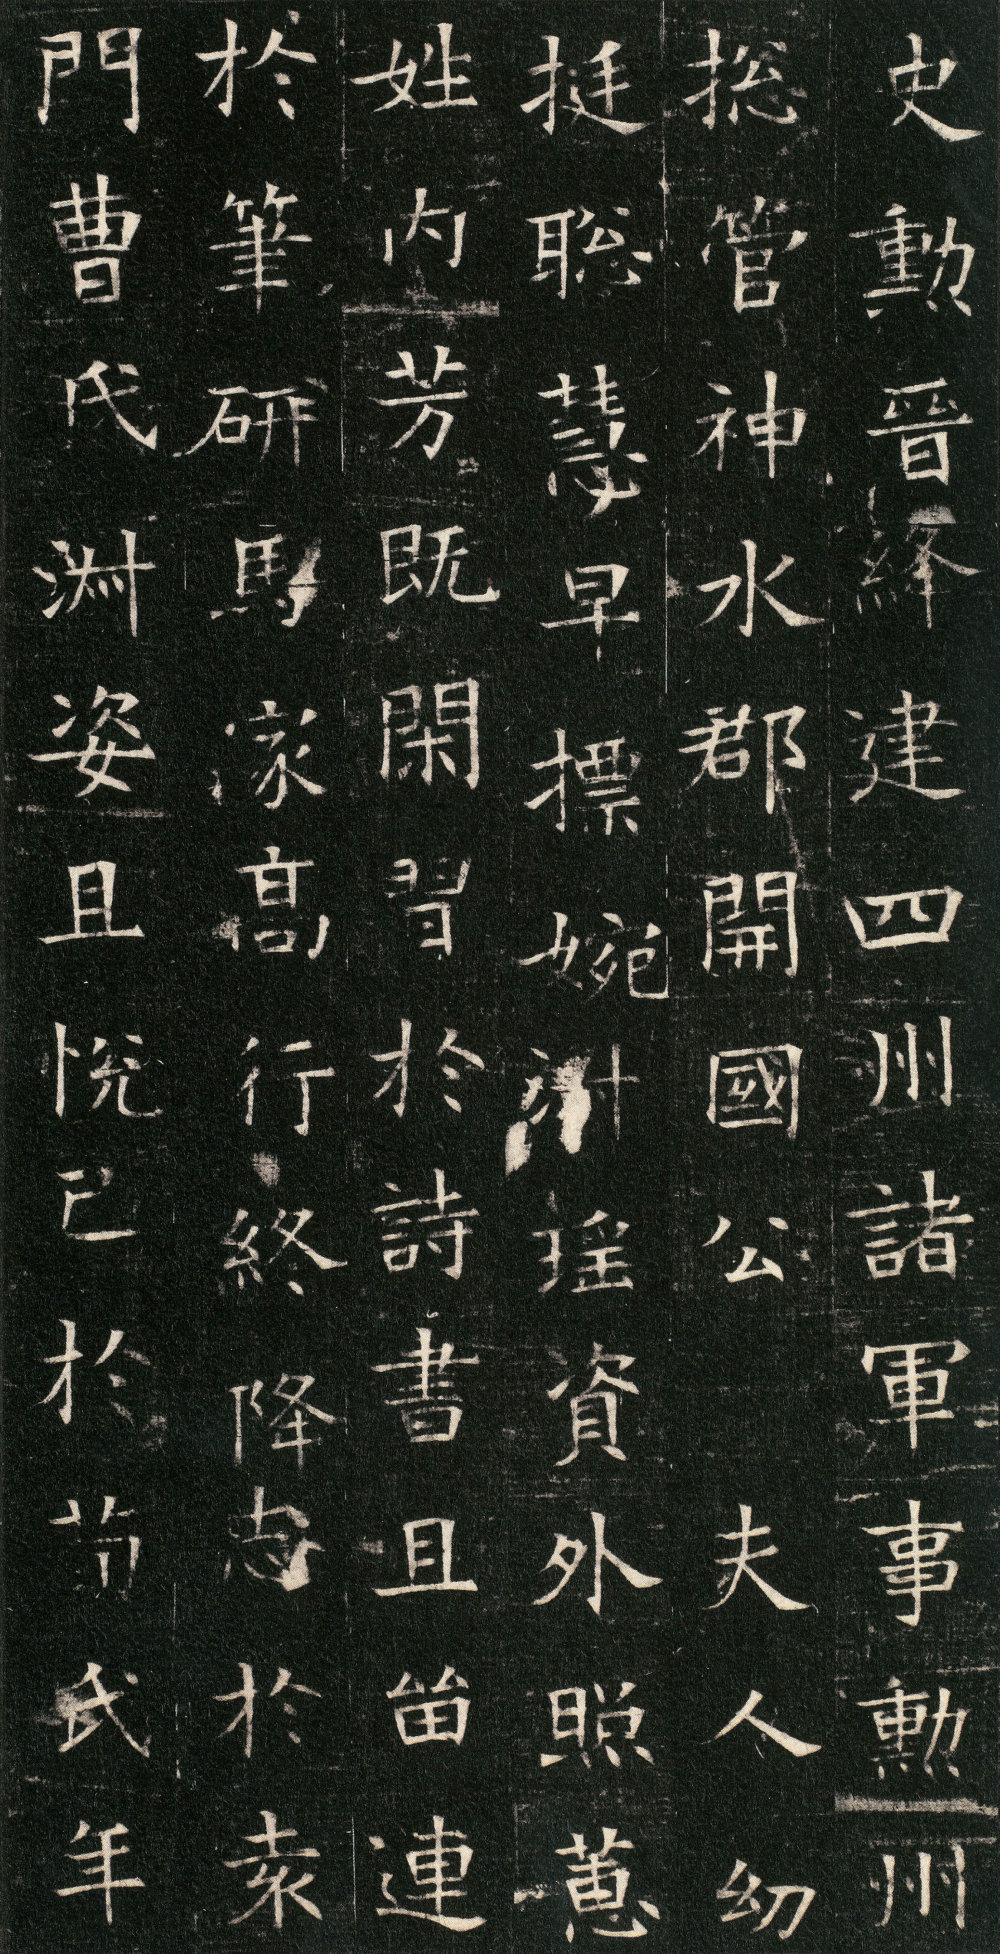 史勲晉絳建四州諸軍事勲州
揔管神水郡開國公 夫人幼
挺聡慧早摽婉淑瑶資外照蕙
姓内芳既閑習於詩書且留連
於筆研馬家高行終降志於袁
門曹氏淑姿且悅已於荀氏年